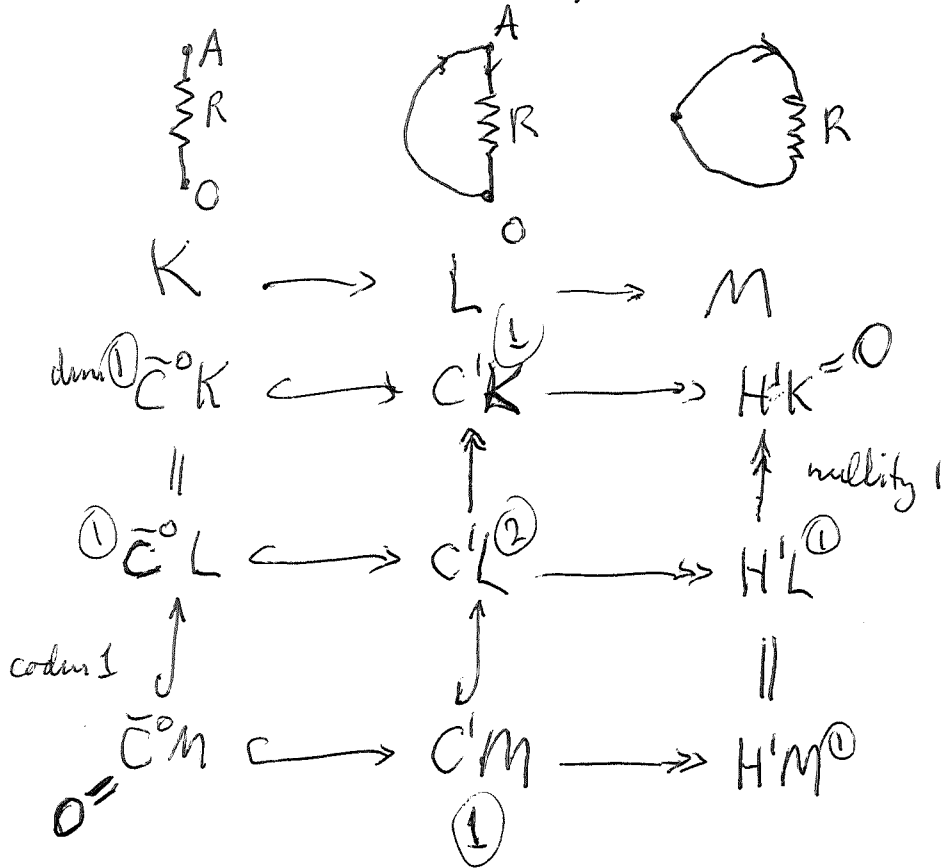 A A
R R R
O O
K → L → M
dim ① C̄⁰K ↪ C¹K ① ↠ H¹K = 0
|| nullity 1
① C̄⁰L ↪ C¹L ② ↠ H¹L ①
codim 1 ||
C̄⁰M ↪ C¹M ↠ H¹M ①
0 = ①